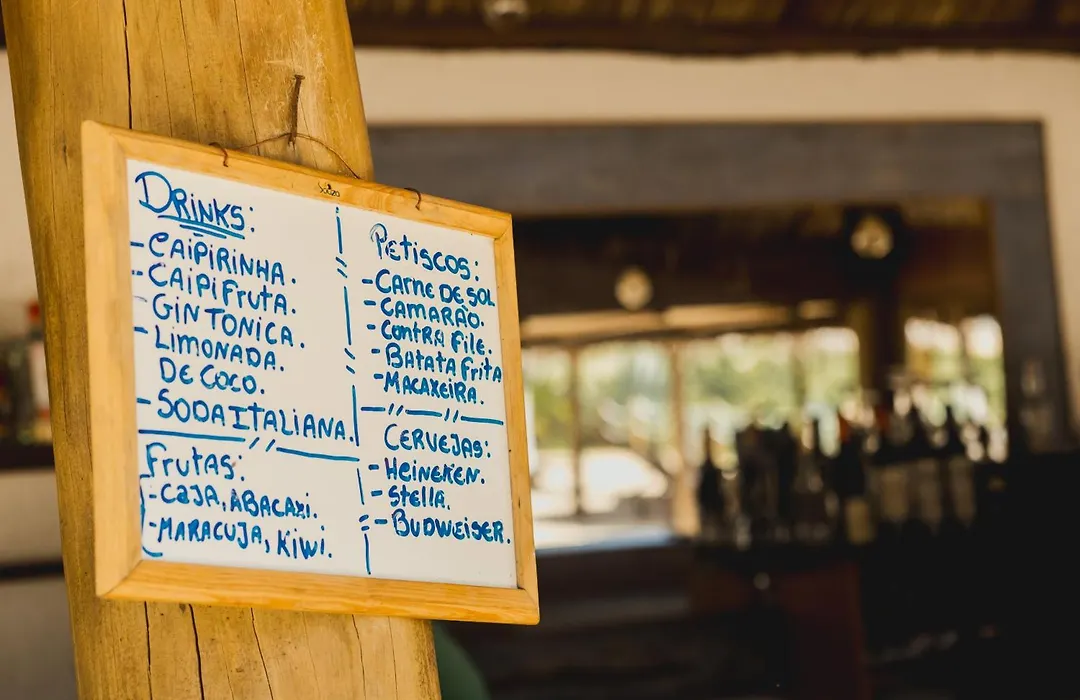 Souza
DRINKS:
- CAIPIRINHA.
- CAIPIFRUTA.
- GIN TONICA.
- LIMONADA.
DE COCO.
- SODA ITALIANA.
FRUTAS:
- CAJA, ABACAXI.
- MARACUJA, KIWI.
PETISCOS:
- CARNE DE SOL
- CAMARÃO.
- CONTRA FILE.
- BATATA FRITA
- MACAXEIRA.
CERVEJAS:
- HEINEKEN.
- STELLA.
- BUDWEISER.